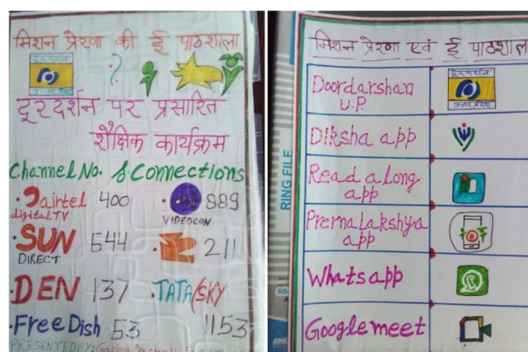 मिशन प्रेरणा की ई पाठशाला
दूरदर्शन
दूरदर्शन पर प्रसारित
शैक्षिक कार्यक्रम
Channel No. & Connections
airtel 400
digital TV
889
VIDEOCON
SUN 544
DIRECT
211
DEN 137
TATA/SKY
Free Dish 53
1153
PRESENTED BY:
RING FILE
मिशन प्रेरणा एवं ई पाठशाला
Doordarshan
U.P
दूरदर्शन
उत्तर प्रदेश
Diksha app
Read along
app
Prerna Lakshya
app
Whats app
Google meet